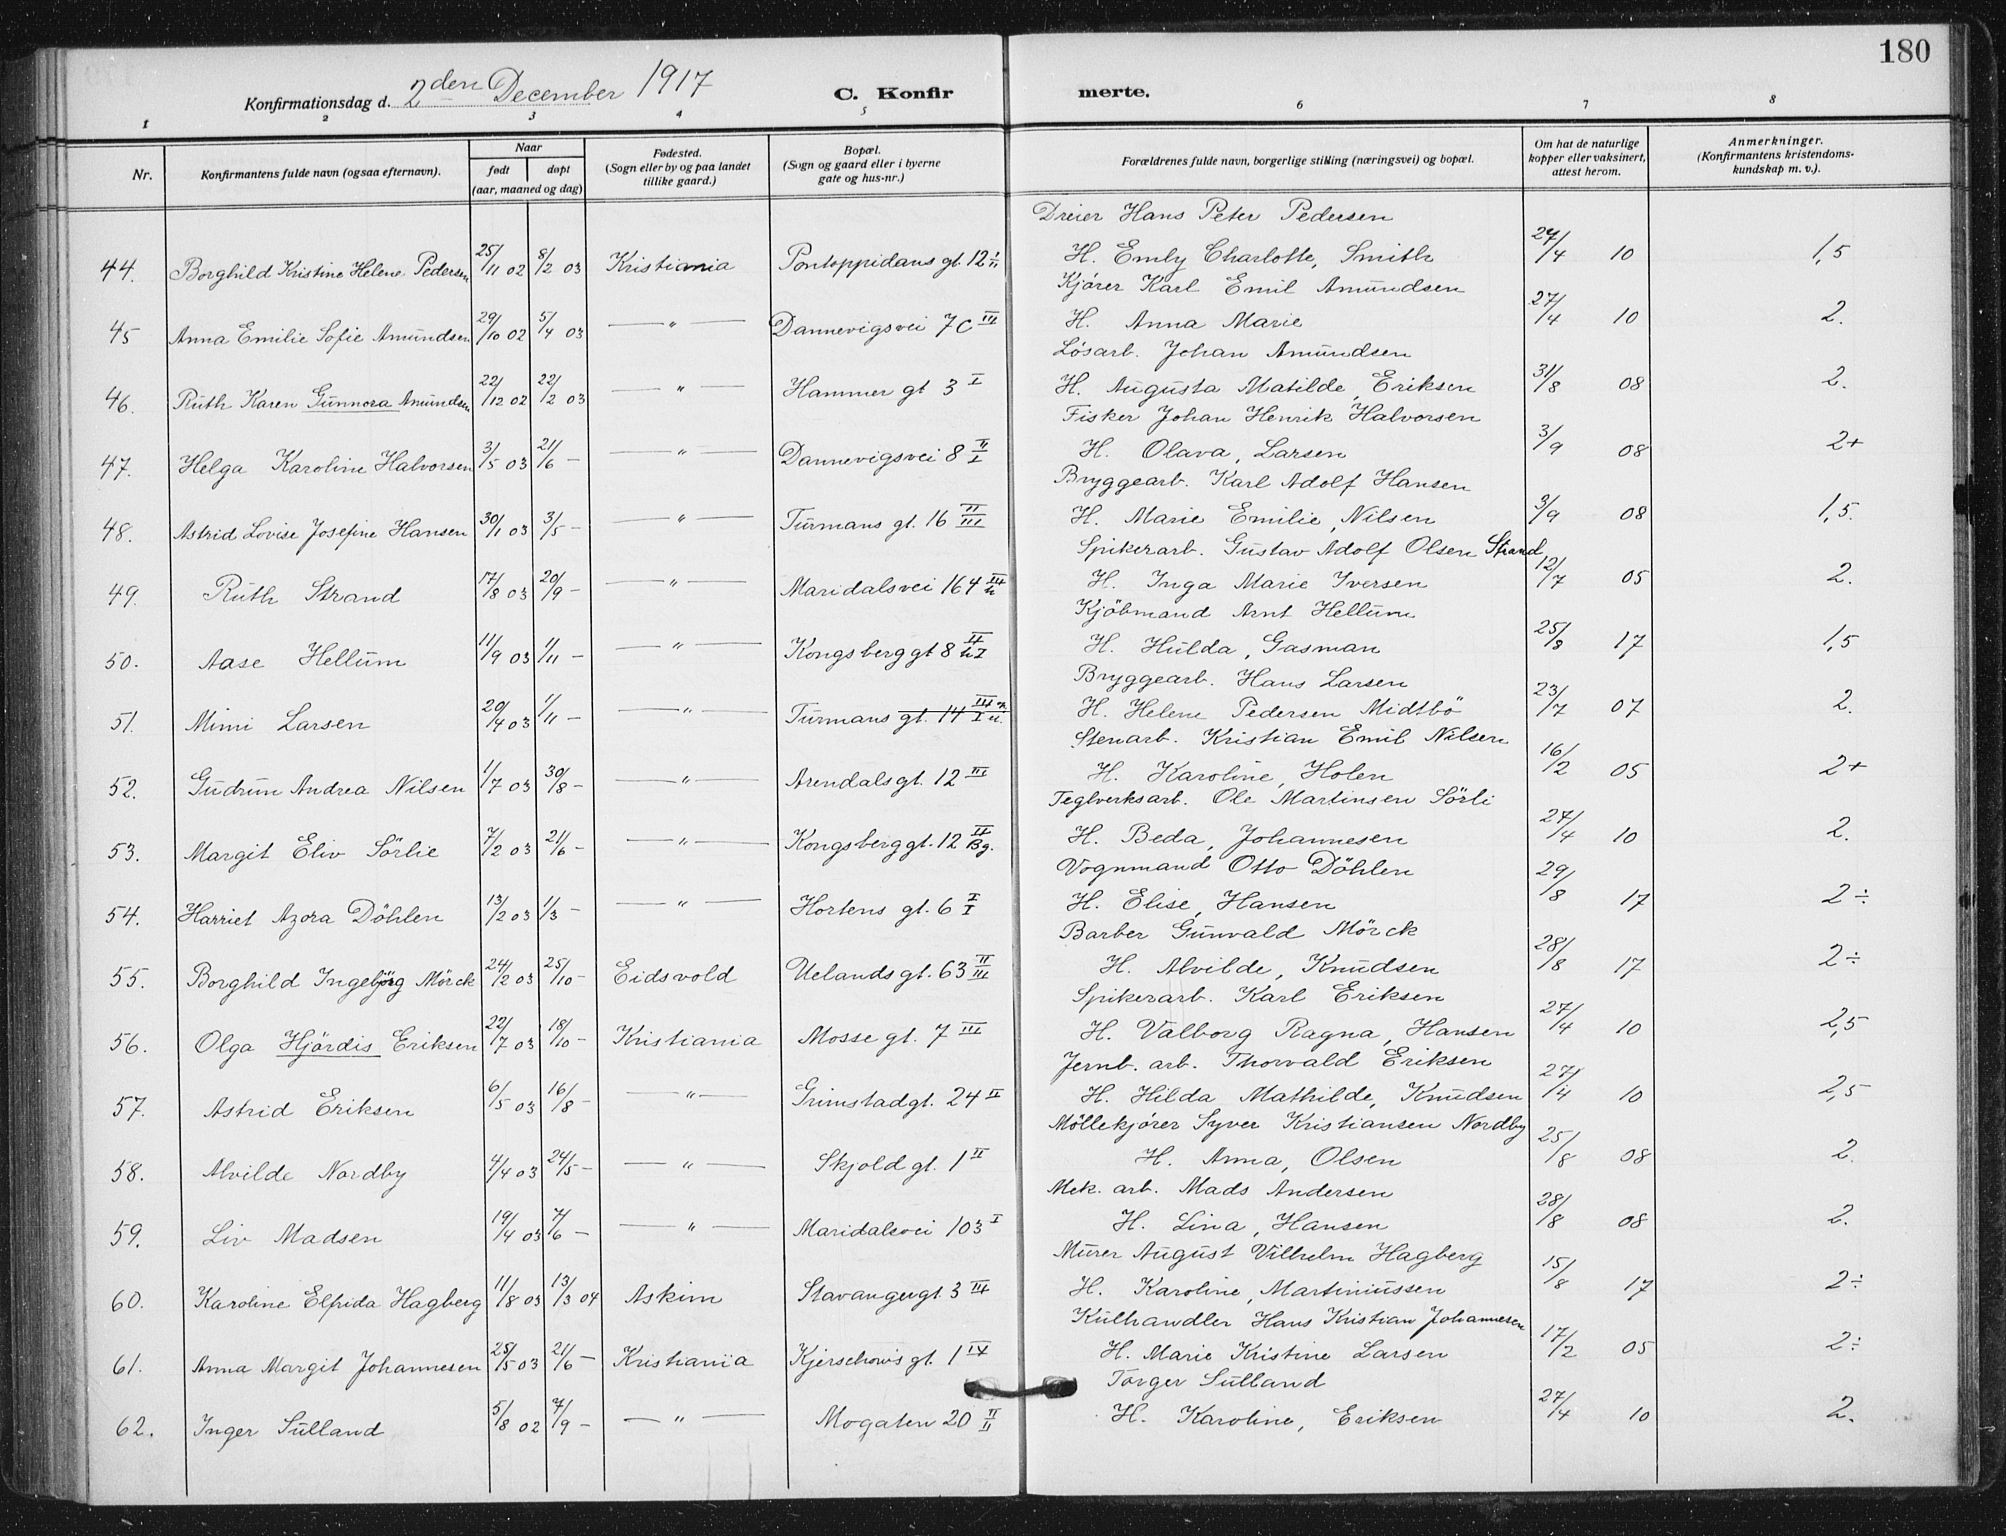 180
Konfirmationsdag d. 2den December 1917 C. Konfirmerte.
1 2 3 4 5 6 7 8
Nr. Konfirmantens fulde navn (ogsaa efternavn). Naar født døpt (aar, maaned og dag) Fødested. (Sogn eller by og paa landet tillike gaard.) Bopæl. (Sogn og gaard eller i byerne gate og hus-nr.) Forældrenes fulde navn, borgerlige stilling (næringsvei) og bopæl. Om hat de naturlige kopper eller vaksinert, attest herom. Anmerkninger. (Konfirmantens kristendomskundskap m. v.).
Dreier Hans Peter Pedersen
44. Borghild Kristine Helene Pedersen 25/11 02 8/2 03 Kristiania Pontoppidans gt. 12 H. Emly Charlotte, Smith 27/4 10 1,5
Kjører Karl Emil Amundsen
45 Anna Emilie Sofie Amundsen 29/10 02 5/4 03 — " — Dannevigsvei 7c III H. Anna Marie 27/4 10 2.
Løsarb. Johan Amundsen
46. Ruth Karen Gunnora Amundsen 22/12 02 22/2 03 — " — Hammer gt 3 I H. Augusta Matilde, Eriksen 31/8 08 2.
Fisker Johan Henrik Halvorsen
47. Helga Karoline Halvorsen 3/5 03 21/6 — — " — Dannevigsvei 8 II/I H. Olava, Larsen 3/9 08 2+
Bryggearb. Karl Adolf Hansen
48. Astrid Lovise Josefine Hansen 30/1 03 3/5 — — " — Turmans gt. 16 II/III H. Marie Emilie, Nilsen 3/9 08 1,5.
Spikerarb. Gustav Adolf Olsen Strand
49. Ruth Strand 17/8 03 20/9 — — " — Maridalsvei 164 H. Inga Marie Iversen 12/7 05 2.
Kjöbmand Arnt Hellum
50. Aase Hellum 11/9 03 1/11 — — " — Kongsberggt 8 H. Hulda, Gasman 25/8 17 1,5
Bryggearb. Hans Larsen
51. Mimi Larsen 20/4 03 1/11 — — " — Turmans gt. 14 H. Helene Pedersen Midtbö 23/7 07 2.
Stenarb. Kristian Emil Nilsen
52. Gudrun Andrea Nilsen 1/7 03 30/8 — — " — Arendals gt. 12 III H. Karoline, Holen 16/2 05 2+
Teglverksarb. Ole Martinsen Sörli
53. Margit Eliv Sörlie 7/2 03 21/6 — — " — Kongsberg gt. 12 Bg. H. Beda, Johannesen 27/4 10 2.
Vognmand Otto Döhlen
54. Harriet Azora Döhlen 13/2 03 1/3 — — " — Hortens gt. 6 I/I H. Elise, Hansen 29/8 17 2÷
Barber Gunvald Mörck
55. Borghild Ingebjörg Mörck 24/2 03 25/10 — Eidsvold Uelands gt. 63 II/III H. Alvilde, Knudsen 28/8 17 2÷
Spikerarb. Karl Eriksen
56. Olga Hjördis Eriksen 22/7 03 18/10 — Kristiania Mosse gt. 7 III H. Valborg Ragna, Hansen 27/4 10 2,5
Jernb. arb. Thorvald Eriksen
57. Astrid Eriksen 6/5 03 16/8 — — " — Grimstadgt. 24 II H. Hilda Mathilde, Knudsen 27/4 10 2,5
Möllekjører Syver Kristiansen Nordby
58. Alvilde Nordby 4/4 03 24/5 — — " — Skjold gt. 1 II H. Anna, Olsen 25/8 08 2.
Mek. arb. Mads Andersen
59. Liv Madsen 19/4 03 7/6 — — " — Maridalsvei 103 I H. Lina, Hansen 28/8 08 2.
Murer August Vilhelm Hagberg
60. Karoline Elfrida Hagberg 11/8 03 13/3 04 Askim Stavangergt. 3 H. Karoline, Martiniussen 15/8 17 2÷
Kulhandler Hans Kristian Johannesen
61. Anna Margit Johannesen 25/5 03 21/6 — Kristiania Kjerschows gt. 1 H. Marie Kristine Larsen 17/2 05 2÷
Torger Sulland
62. Inger Sulland 5/8 02 7/9 — — " — Mogaten 20 II/II H. Karoline, Eriksen 27/4 10 2.